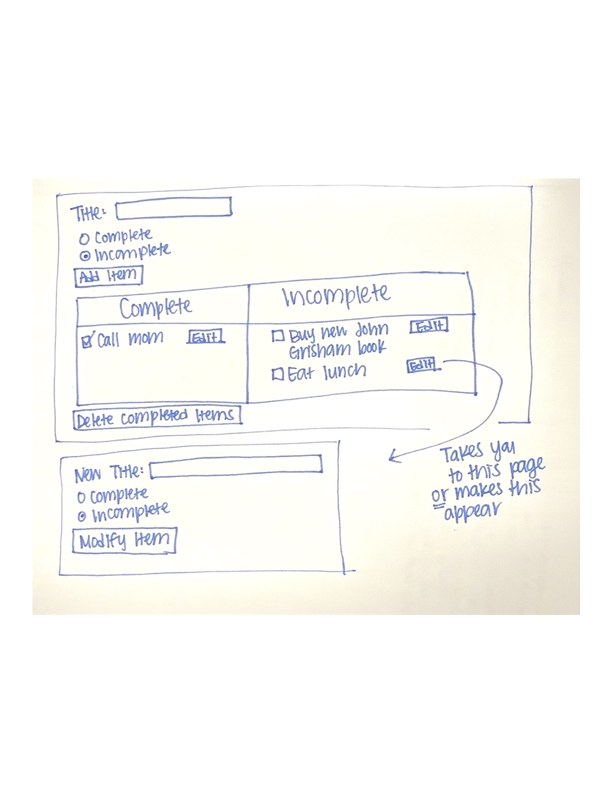 Title:
Complete
Incomplete
Add Item
Complete Incomplete
Call mom Edit Buy new John Edit
Grisham book
Eat lunch Edit
Delete completed items
Takes you
to this page
or makes this
appear
New Title:
Complete
Incomplete
Modify Item